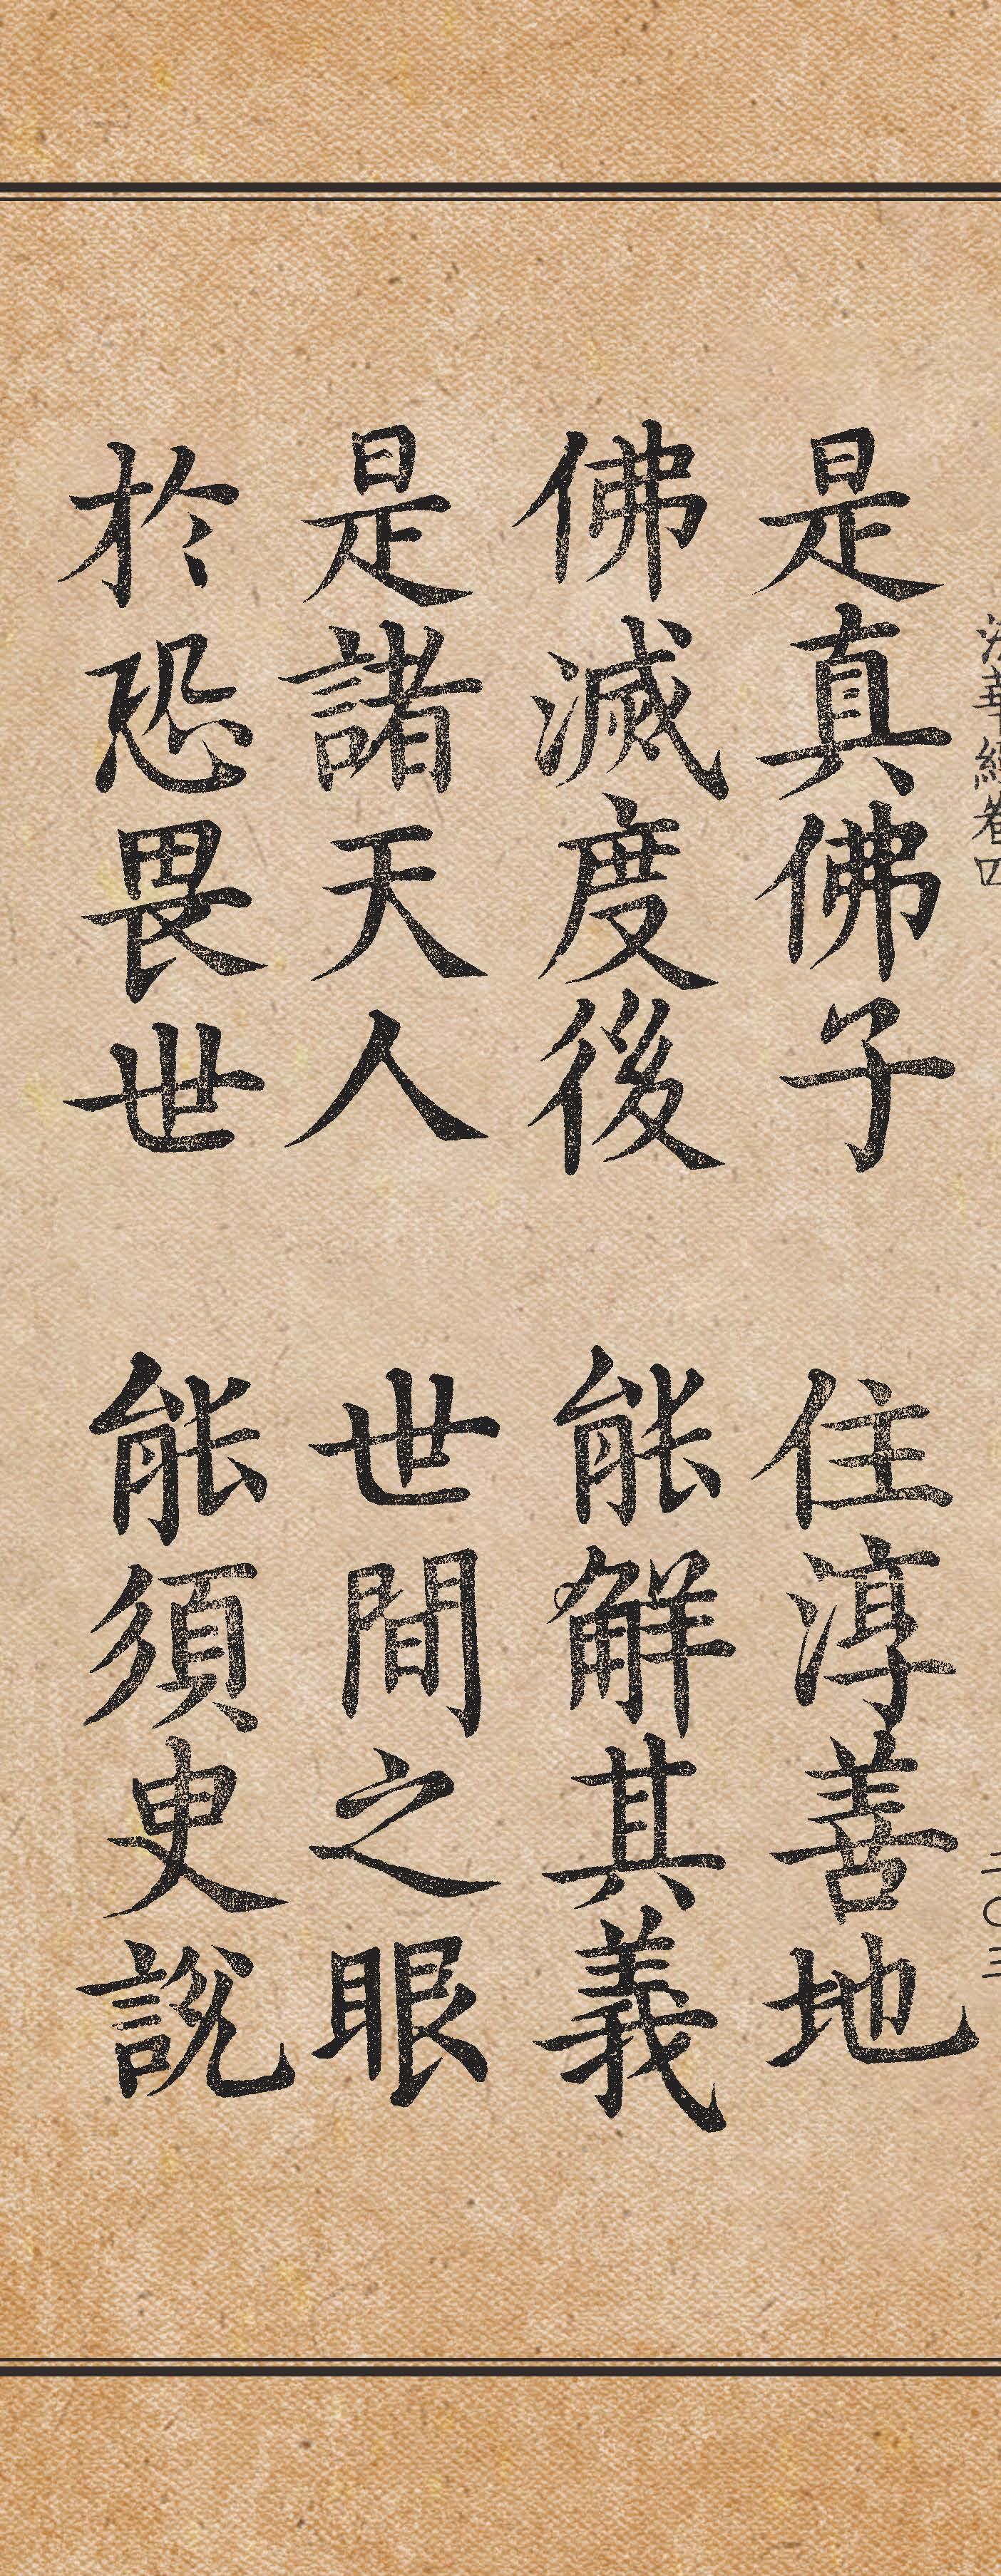 法華經卷四
二〇三
是真佛子 住淳善地
佛滅度後 能解其義
是諸天人 世間之眼
於恐畏世 能須臾說